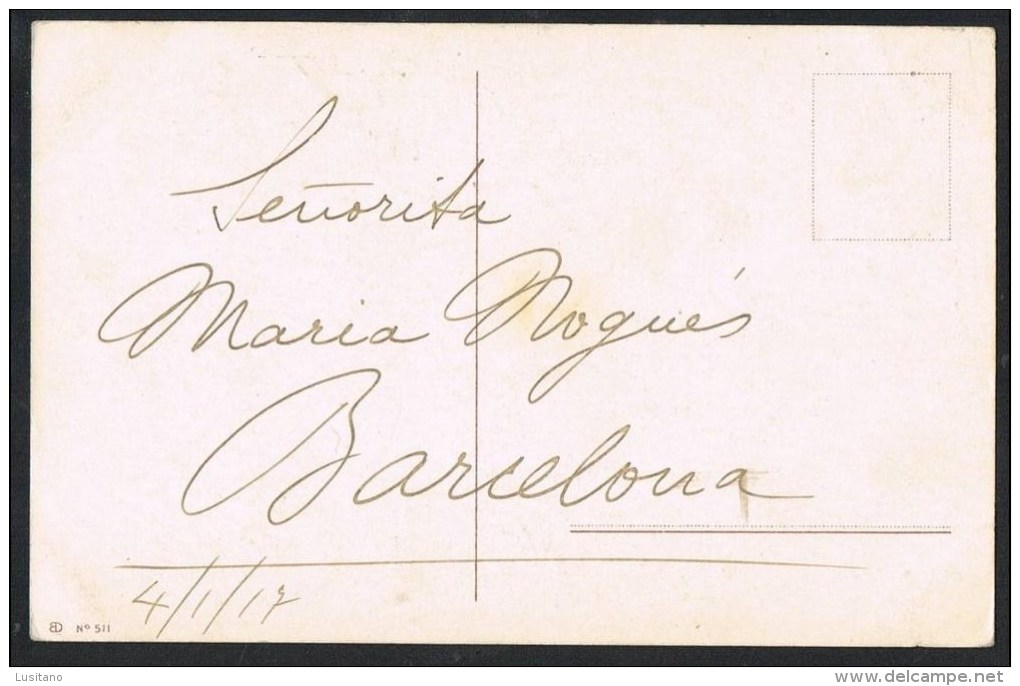 Señorita
Maria Nogués
Barcelona
4/1/17
BD Nº 511
Lusitano
www.delcampe.net